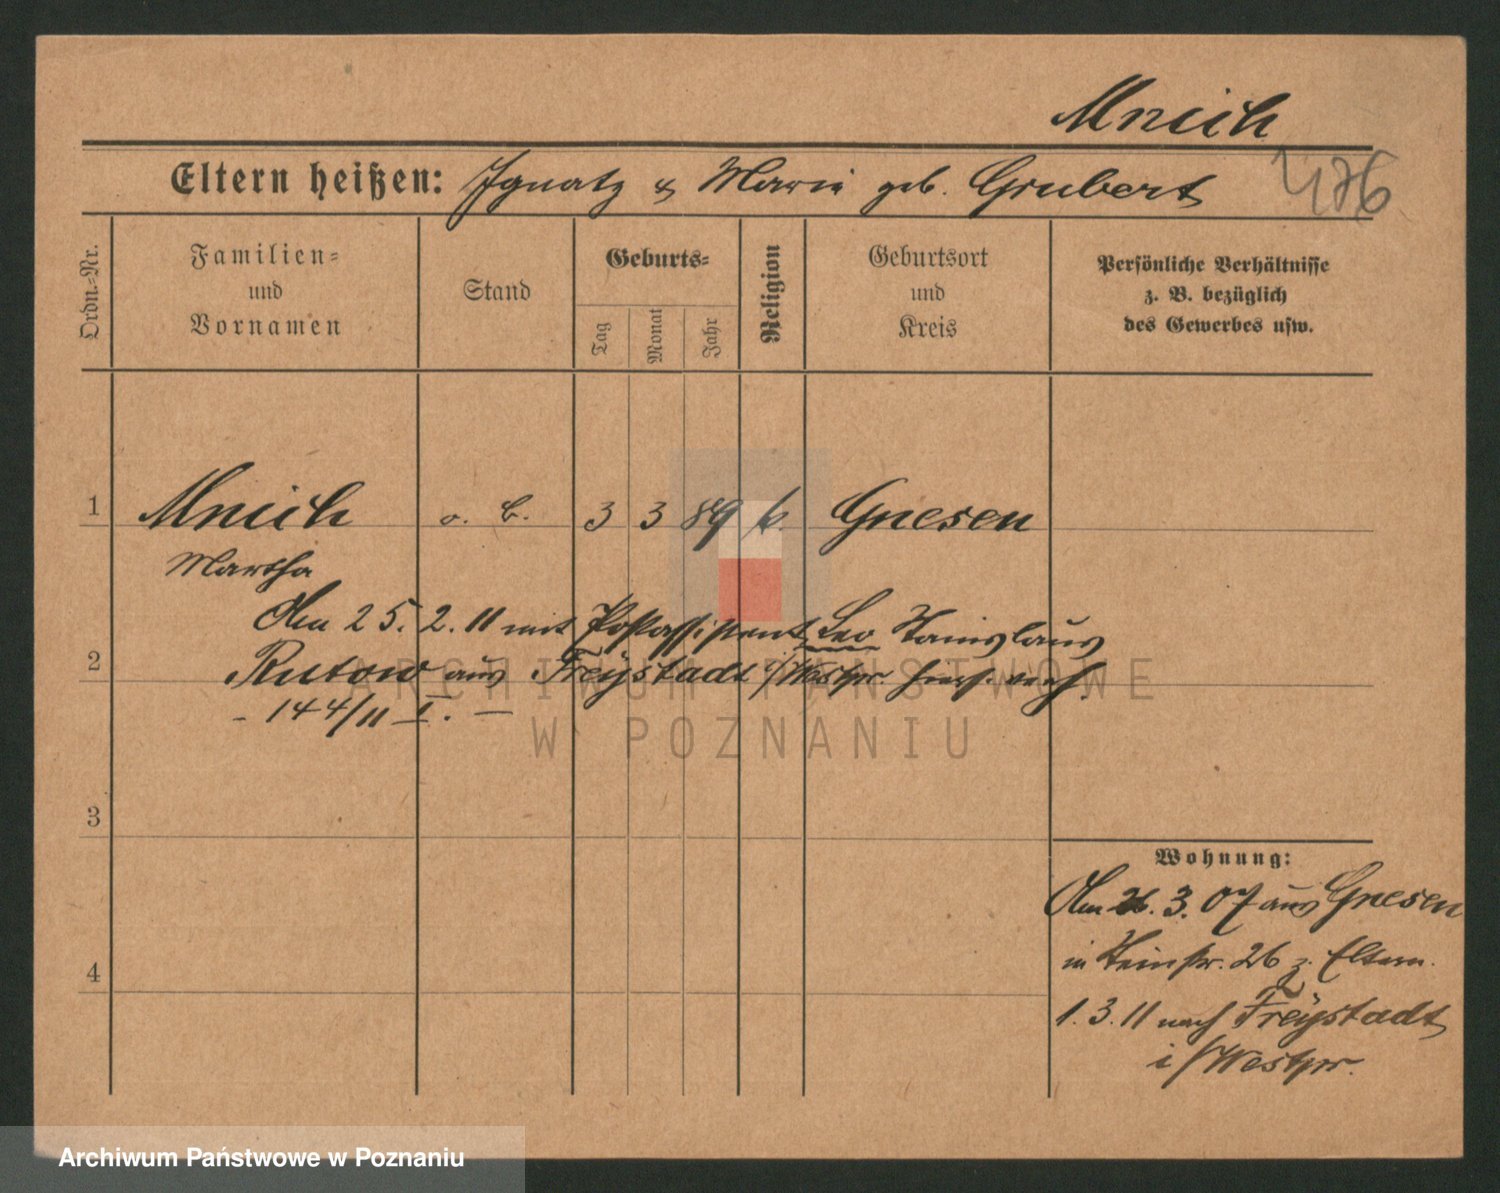 Mnich
Eltern heißen: Ignatz & Marie geb. Grubert
Ordn.-Nr.
Familien-
und
Vornamen
Stand
Geburts-
Tag
Monat
Jahr
Religion
Geburtsort
und
Kreis
Persönliche Verhältnisse
z. B. bezüglich
des Gewerbes usw.
1 Mnich o. B. 3 3 89 k. Gnesen
Martha
Am 25.2.11 mit Postassistent Leo Stanislaus
2 Rutow aus Freystadt i/Westpr. hiers. verh.
- 144/11 I. -
3
4
Wohnung:
Am 26.3.07 aus Gnesen
in 26 z. Eltern.
1.3.11 nach Freystadt
i/Westpr.
ARCHIWUM PAŃSTWOWE
W POZNANIU
Archiwum Państwowe w Poznaniu